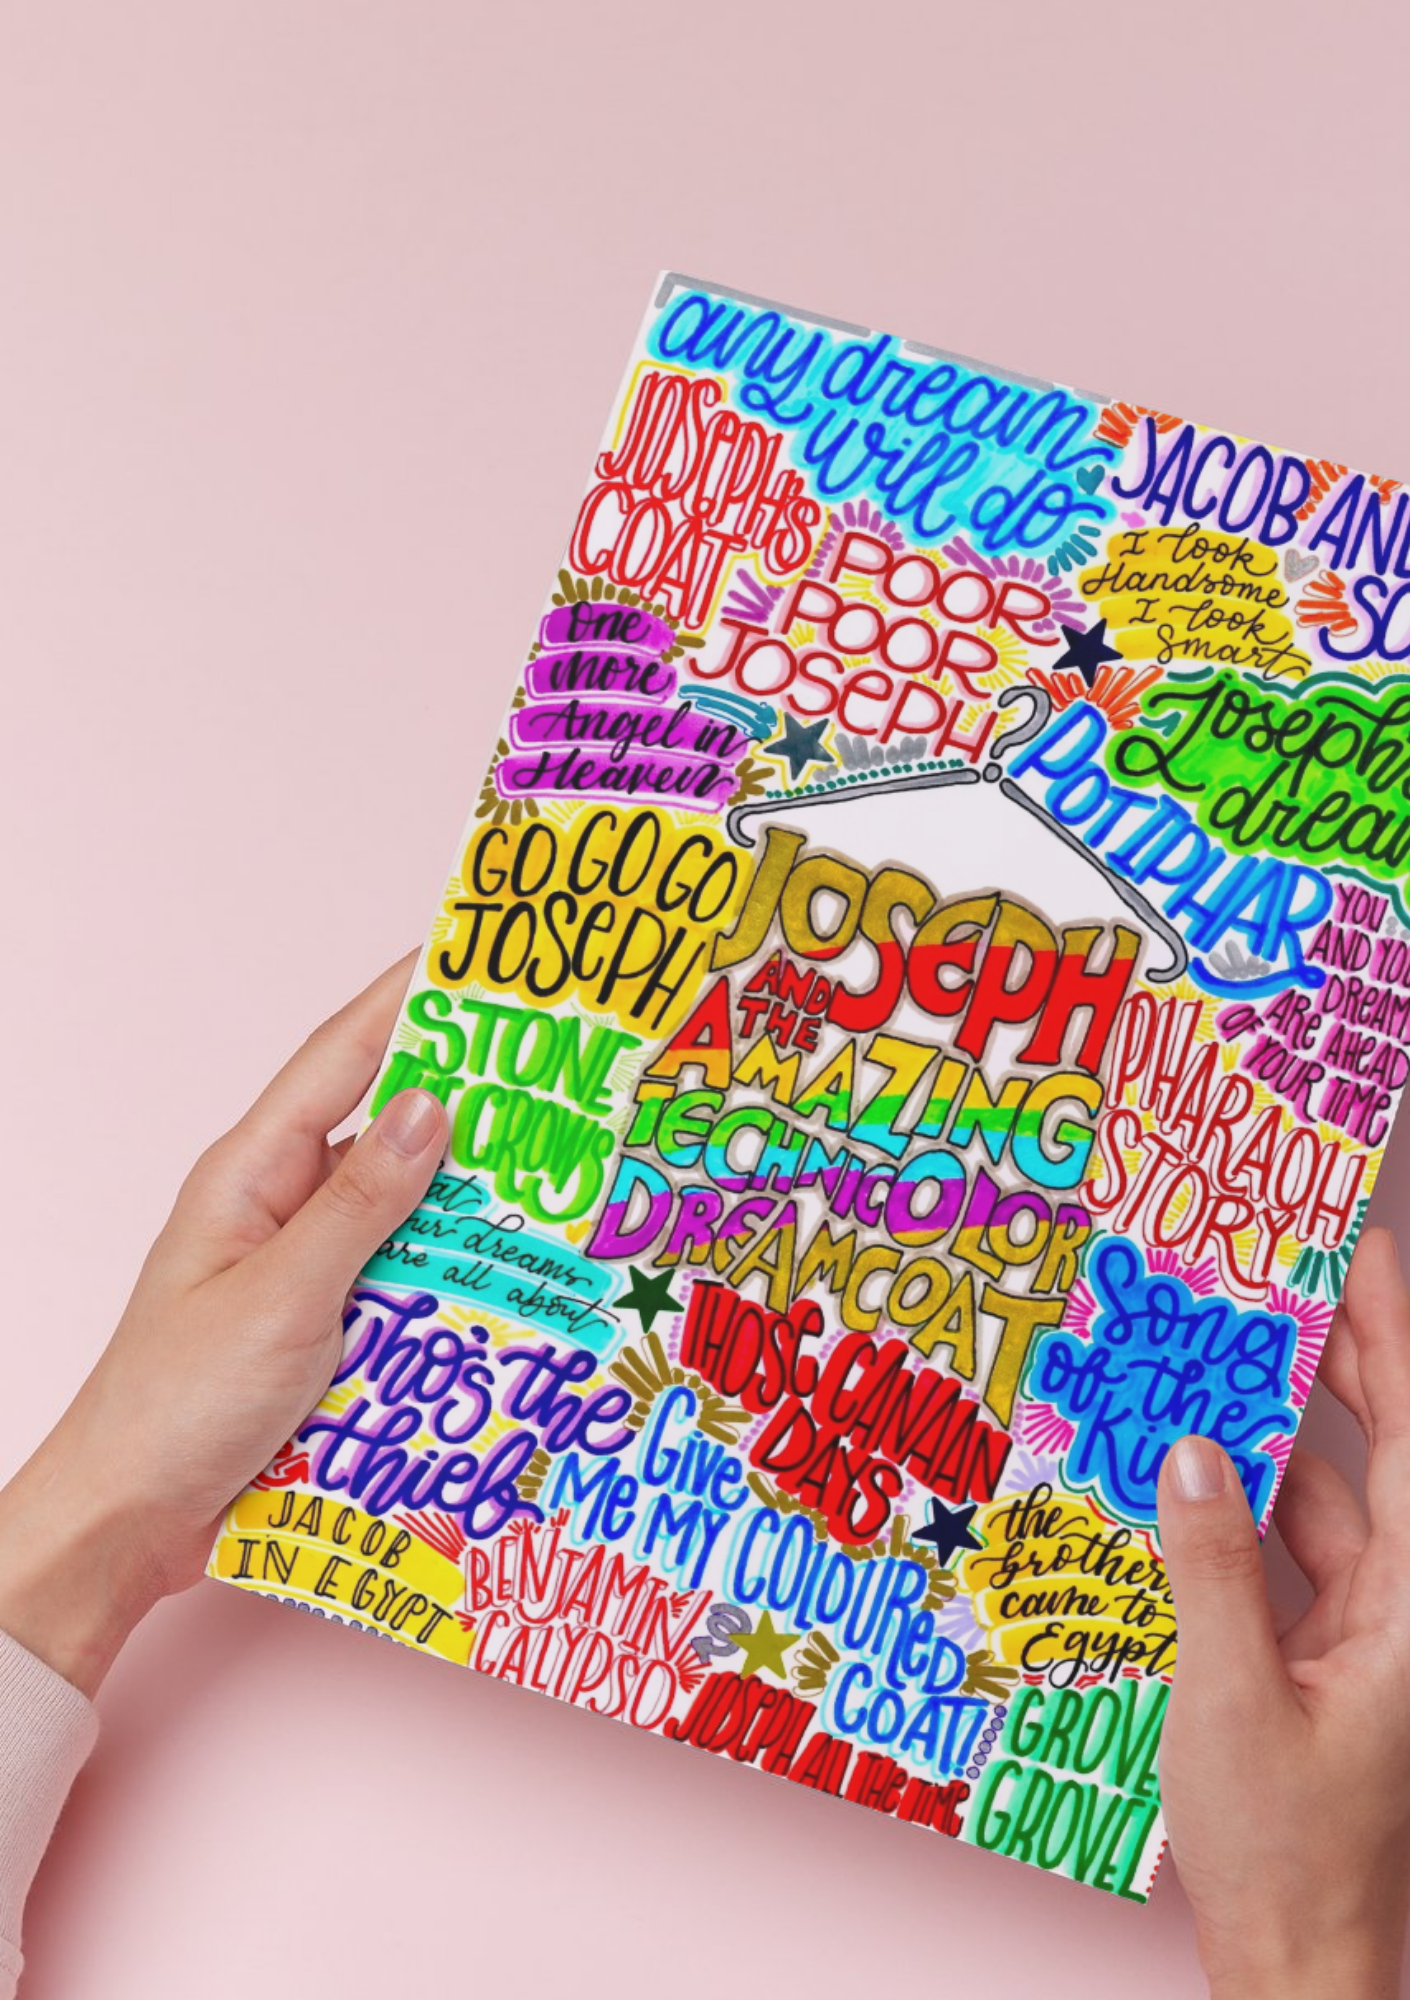 any dream
will do
JOSEPH'S
COAT
JACOB AND
I look
Handsome
I look
Smart
POOR
POOR
JOSEPH
One
more
Angel in
Heaven
Joseph's
POTIPHAR
GO GO GO
JOSEPH
YOU
AND YOUR
ARE AHEAD
OF YOUR TIME
JOSEPH
AND
THE
AMAZING
TECHNICOLOR
DREAMCOAT
STONE
THE CROWS
PHARAOH
STORY
dreams
are all about
Song
of the
King
THOSE CANAAN
DAYS
Who's the
thief
Give
Me MY COLOURED
COAT!
the
brothers
came to
Egypt
JACOB
IN EGYPT
BENJAMIN
CALYPSO
JOSEPH ALL THE TIME
GROVEL
GROVEL